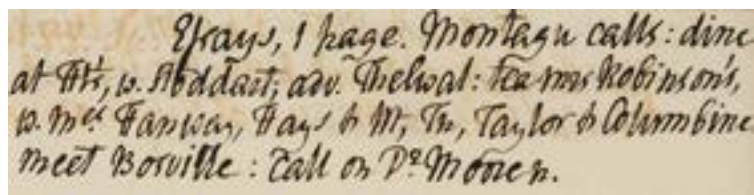 Essays, 1 page. Montagu calls: dine
at Ht's, w. Stoddart; adv. Thelwal: tea mrs Robinson's,
w. mrs Fanway, Hays & M, Th, Taylor & Columbine
meet Bosville: call on Dr Moore n.